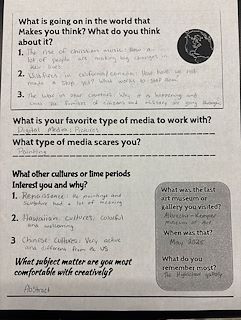 What is going on in the world that
Makes you think? What do you think
about it?
1. The rise of christian music. How a
lot of people are making big changes in
their lives.
2. Wildfires in california/canada. How have we not
made a stop yet? What works to stop them
3. The war in other countries. Why it is happening and
the families of citizens and military are going through.
What is your favorite type of media to work with?
Digital Media: Pictures
What type of media scares you?
Painting
What other cultures or time periods
Interest you and why?
1. Renaissance: the paintings and
sculpture had a lot of meaning
2. Hawaiian cultures, colorful
and welcoming
3. Chinese cultures: Very active
and different from the US
What subject matter are you most
comfortable with creatively?
Abstract
What was the last
art museum or
gallery you visited?
Albrecht-Kemper
Museum of Art
When was that?
May 2025
What do you
remember most?
The Highschool gallery